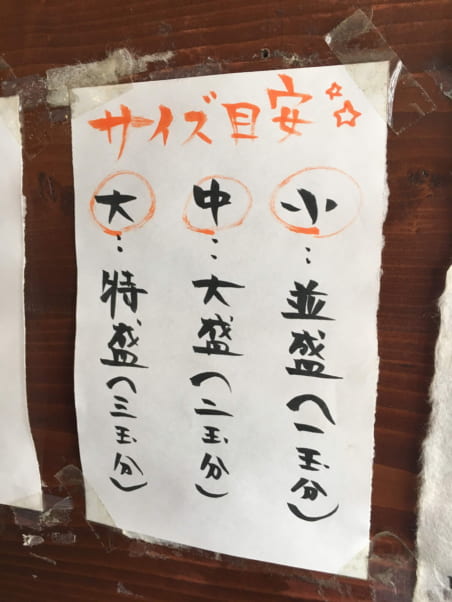 サイズ目安☆☆
小…並盛(一玉分)
中…大盛(二玉分)
大…特盛(三玉分)